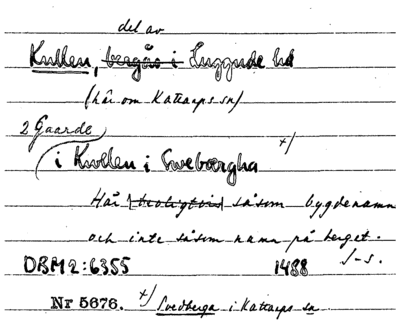 del av
Kullen, bergås i Luggude hd
(här om Kattarps sn)
2 Gaarde
i Kullen i Swebærgha +)
Här [troligtvis] såsom bygdenamn
och inte såsom namn på berget.
DRM 2:6355 1488 J-s.
Nr 5676. +) Svedberga i Kattarps sn